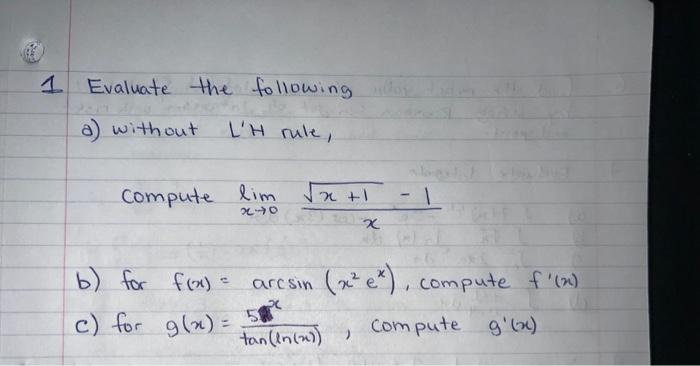 1 Evaluate the following
a) without L'H rule,
compute lim x→0 (√(x+1) - 1)/x
b) for f(x) = arcsin (x² eˣ), compute f'(x)
c) for g(x) = 5ˣ/tan(ln(x)), compute g'(x)